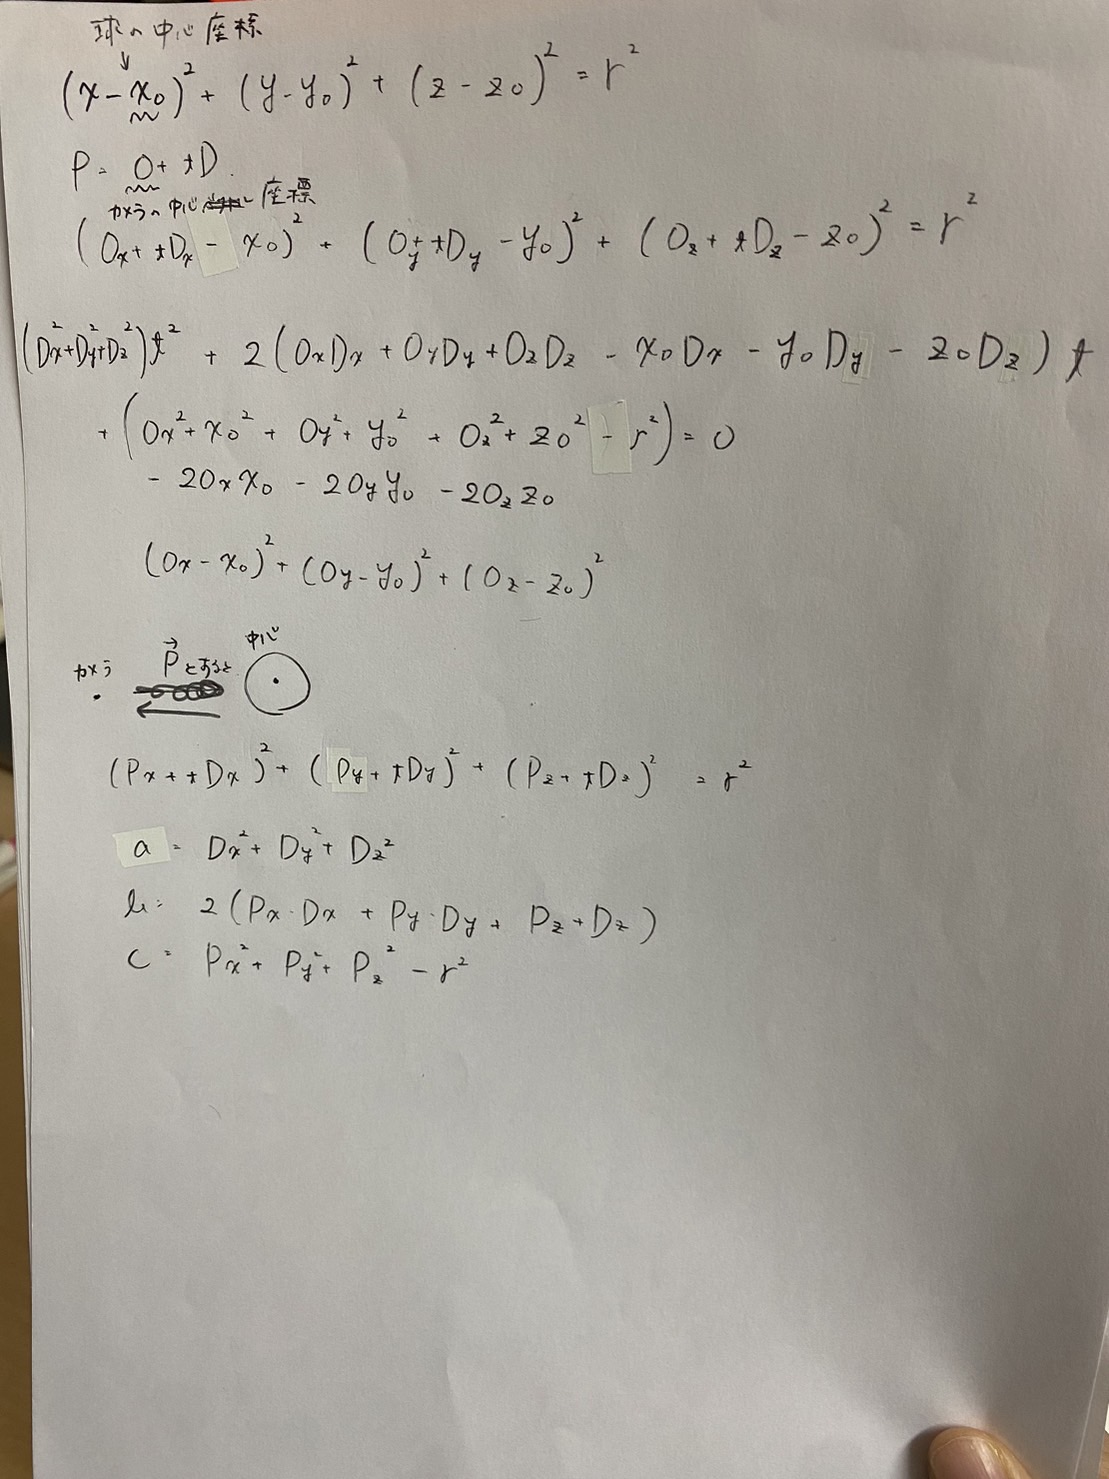 球の中心座標
↓
(x-x₀)² + (y-y₀)² + (z-z₀)² = r²
P = O + tD
カメラの中心座標
(Ox + tDx - x₀)² + (Oy + tDy - y₀)² + (Oz + tDz - z₀)² = r²
(Dx²+Dy²+Dz²)t² + 2(OxDx + OyDy + OzDz - x₀Dx - y₀Dy - z₀Dz)t
+ (Ox² + x₀² + Oy² + y₀² + Oz² + z₀² - r²) = 0
- 2Oxx₀ - 2Oyy₀ - 2Ozz₀
(Ox - x₀)² + (Oy - y₀)² + (Oz - z₀)²
中心
カメラ P⃗とすると
(Px + tDx)² + (Py + tDy)² + (Pz + tDz)² = r²
a = Dx² + Dy² + Dz²
b = 2(Px·Dx + Py·Dy + Pz+Dz)
c = Px² + Py² + Pz² - r²